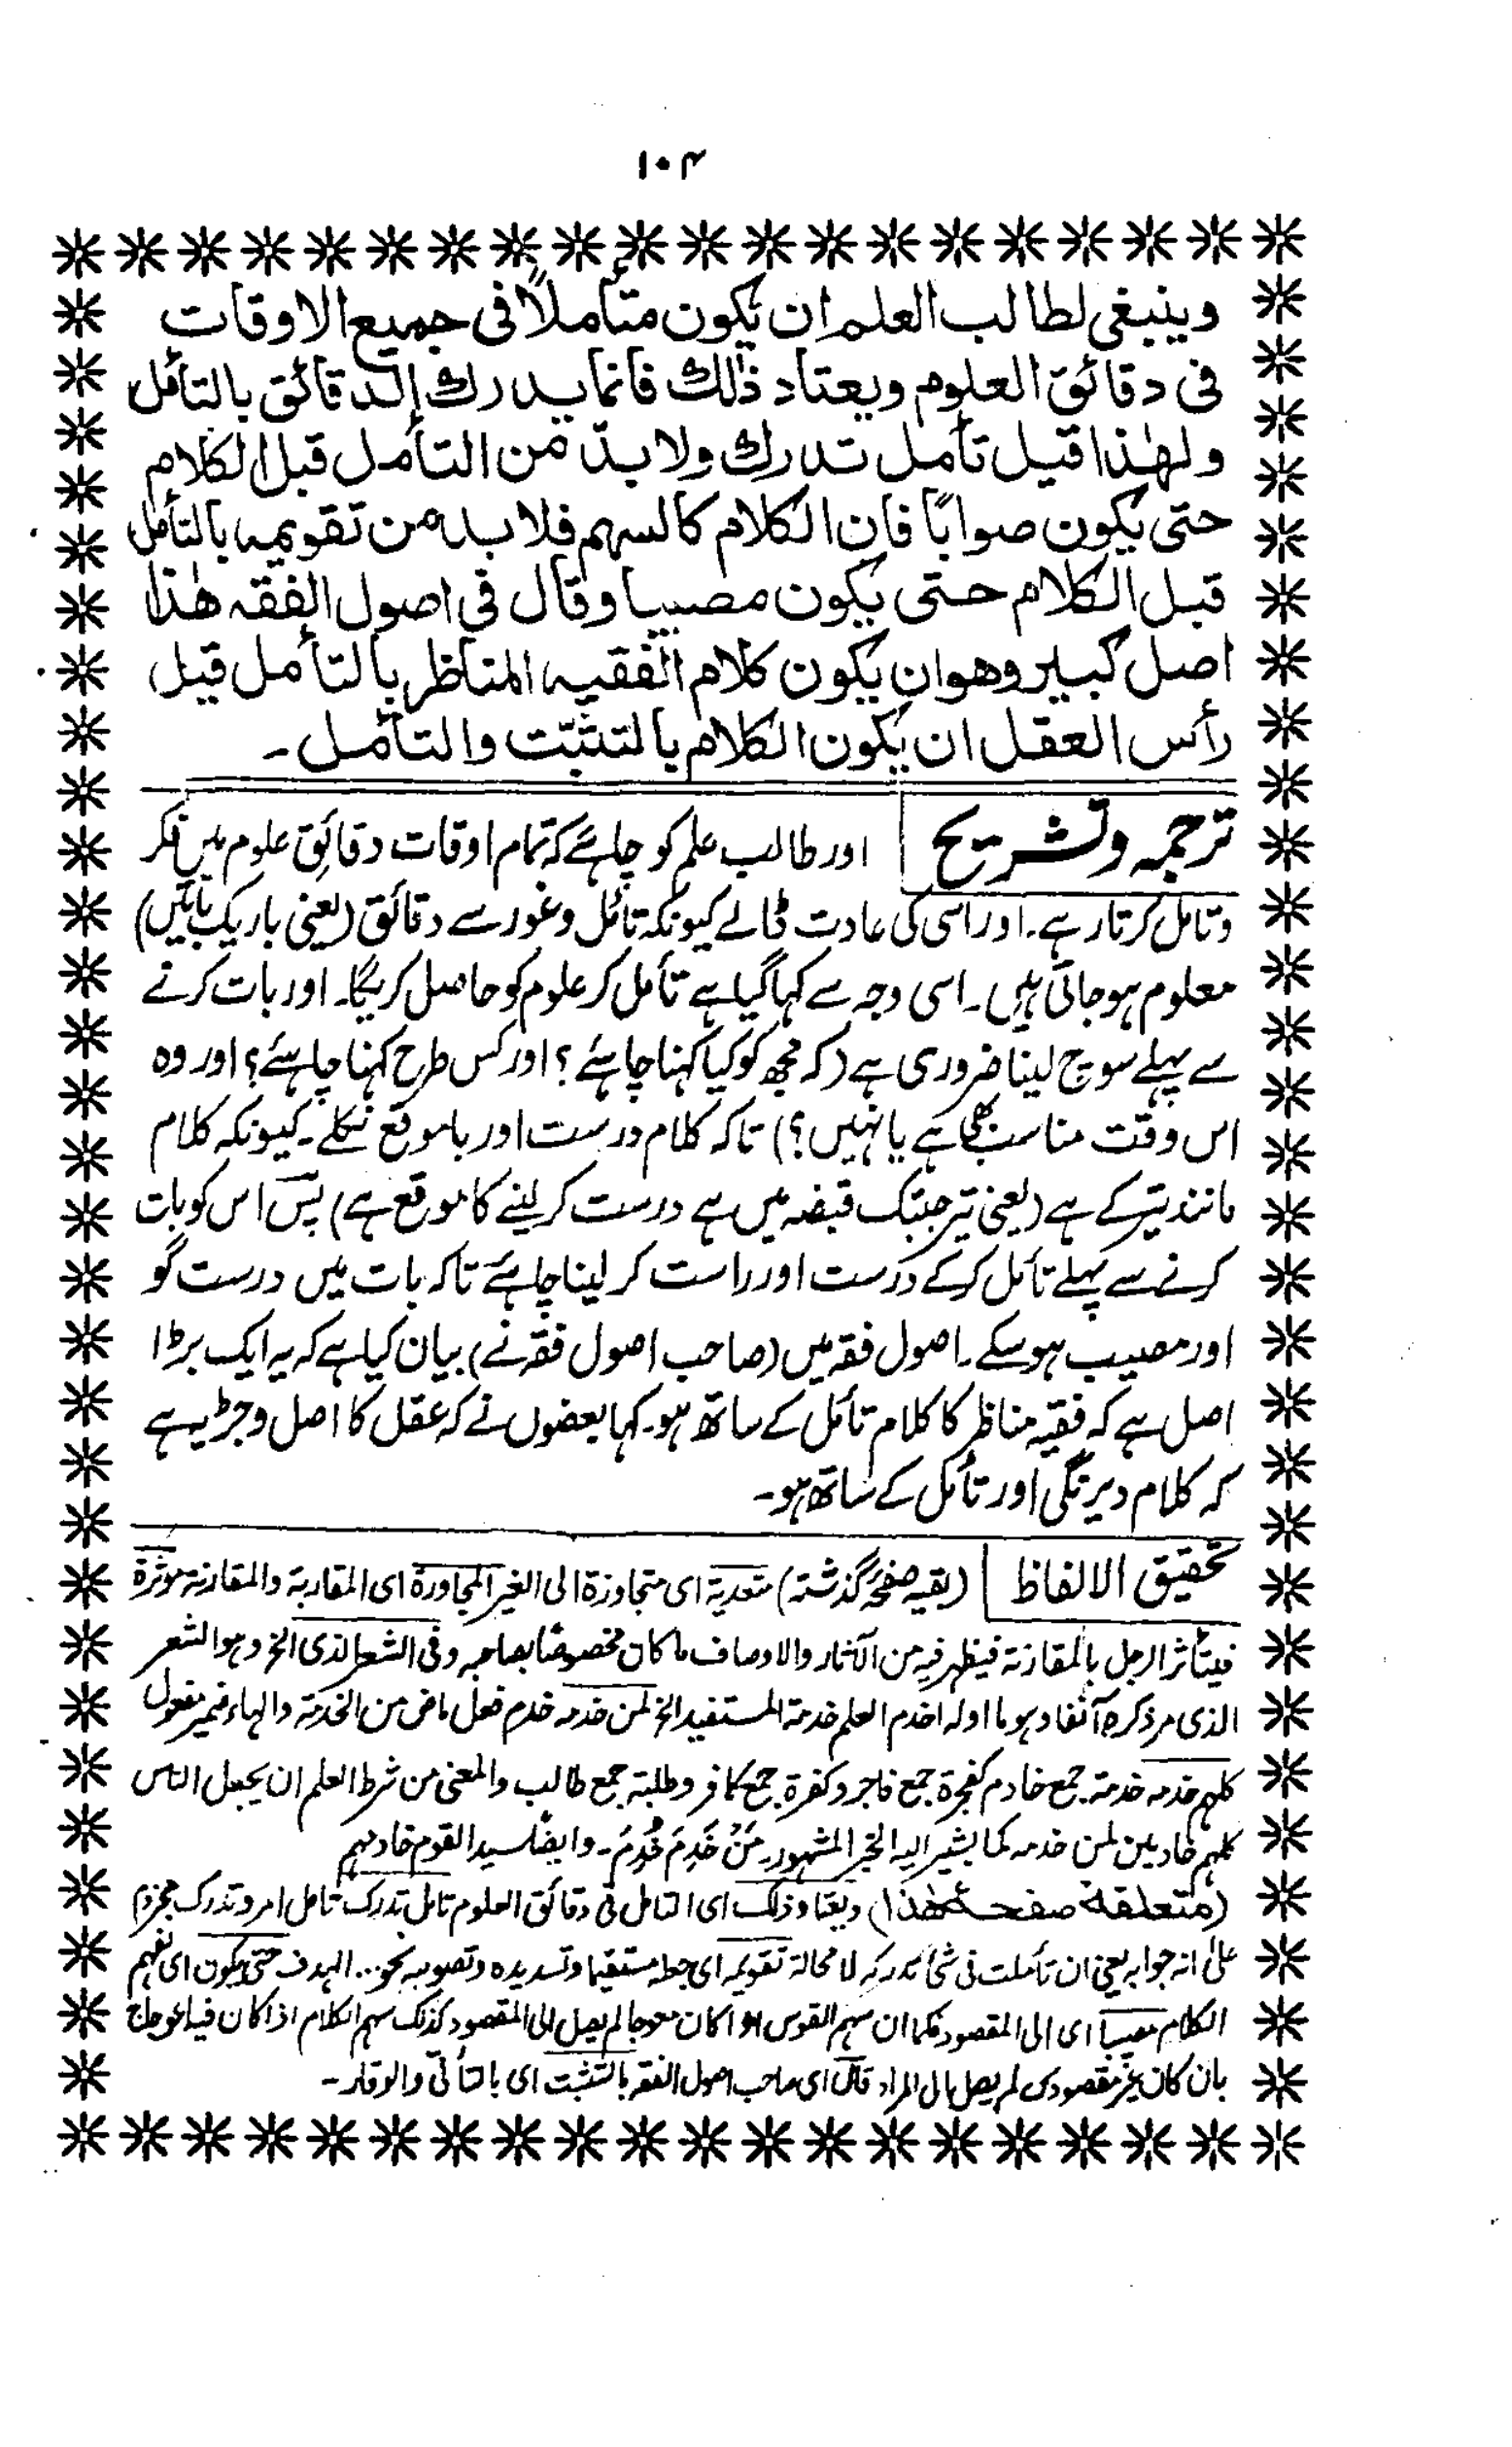 ۱۰۴
وینبغی لطالب العلم ان یکون متأملاً فی جمیع الاوقات
فی دقائق العلوم ویعتاد ذٰلك فانما یدرك الدقائق بالتأمل
ولهٰذا قیل تأمل تدرك ولا بدّ من التأمل قبل الکلام
حتی یکون صوابًا فان الکلام کالسهم فلا بد من تقویمه بالتأمل
قبل الکلام حتی یکون مصیبا وقال فی اصول الفقه هٰذا
اصل کبیر وهو ان یکون کلام الفقیه المناظر بالتأمل قیل
رأس العقل ان یکون الکلام بالتثبّت والتأمل۔
ترجمہ وتشریح اور طالب علم کو چاہئے کہ تمام اوقات دقائق علوم میں فکر
وتامل کرتا رہے۔ اور اسی کی عادت ڈالے کیونکہ تأمل وغور سے دقائق (یعنی باریک باتیں)
معلوم ہو جاتی ہیں۔ اسی وجہ سے کہا گیا ہے تأمل کر علوم کو حاصل کریگا۔ اور بات کرنے
سے پہلے سوچ لینا ضروری ہے (کہ مجھ کو کیا کہنا چاہئے؟ اور کس طرح کہنا چاہئے؟ اور وہ
اس وقت مناسب بھی ہے یا نہیں؟) تاکہ کلام درست اور باموقع نکلے۔ کیونکہ کلام
مانند تیر کے ہے (یعنی تیر جبتک قبضہ میں ہے درست کر لینے کا موقع ہے) پس اس کو بات
کرنے سے پہلے تأمل کر کے درست اور راست کر لینا چاہئے تاکہ بات میں درست گو
اور مصیب ہو سکے۔ اصول فقہ میں (صاحب اصول فقہ نے) بیان کیا ہے کہ یہ ایک بڑا
اصل ہے کہ فقیہ مناظر کا کلام تأمل کے ساتھ ہو۔ کہا بعضوں نے کہ عقل کا اصل و جڑ یہ ہے
کہ کلام دیرنگی اور تأمل کے ساتھ ہو۔
تحقیق الالفاظ (بقیہ صفحۂ گذشتہ) متعدیۃ ای متجاوزۃ الی الغیر المجاورۃ ای المقاربۃ والمقارنۃ مؤثرۃ
فیتأثر الرجل بالمقارنۃ فیظہر فیہ من الآثار والاوصاف ما کان مخصوصًا بصاحبہ وفی الشعر الذی الخ وہو الشعر
الذی مر ذکرہ آنفا وہو ما اولہ اخدم العلم خدمۃ المستفید الخ لمن خدمہ خدم فعل ماض من الخدمۃ والہاء ضمیر مفعول
کلہم خدمہ خدمۃ جمع خادم کفجرۃ جمع فاجر وکفرۃ جمع کافر وطلبۃ جمع طالب والمعنی من شرط العلم ان یجعل الناس
کلہم خادمین لمن خدمہ کما یشیر الیہ الخبر المشہور۔ مَنْ خَدِمَ خُدِمَ۔ وایضًا سید القوم خادمہم
(متعلقۂ صفحۂ ھٰذا) ویعتاد ذلک ای التامل فی دقائق العلوم تامل تدرک تامل امر وتدرک مجزوم
علیٰ انہ جوابہ یعنی ان تأملت فی شئ تدرکہ لا محالۃ تقویمہ ای جعلہ مستقیما وتسدیدہ وتصویبہ نحو... الہدف حتی یکون ای
الکلام مصیبا ای الی المقصود فکما ان سہم القوس اذا کان معوجا لم یصل الی المقصود کذلک سہم الکلام اذا کان فیہ اعوجاج
بان کان غیر مقصودی لم یصل الی المراد قال ای صاحب اصول الفقہ بالتثبت ای بالتأنی والوقار۔